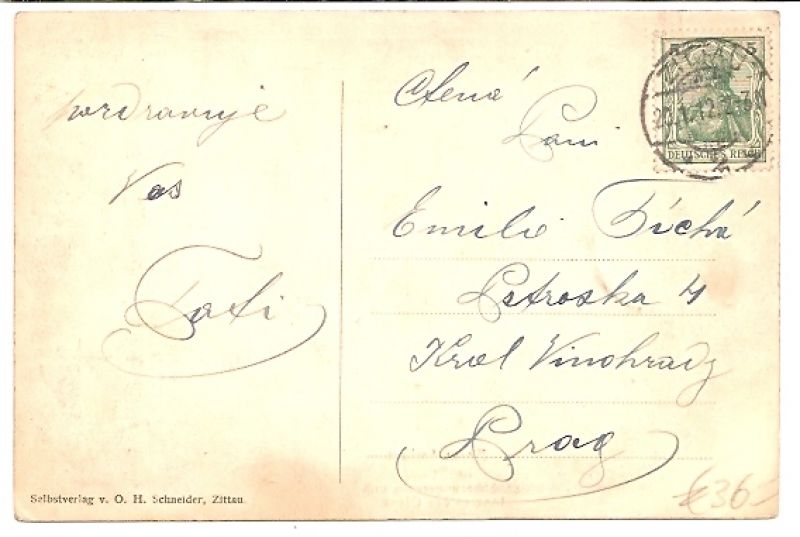 pozdravuje
Vas
Tati
Ctená
Paní
Emilie Tichá
Petroska 4
Kral Vinohrady
Prag
5 5
ZITTAU
DEUTSCHES REICH
Selbstverlag v. O. H. Schneider, Zittau.
36